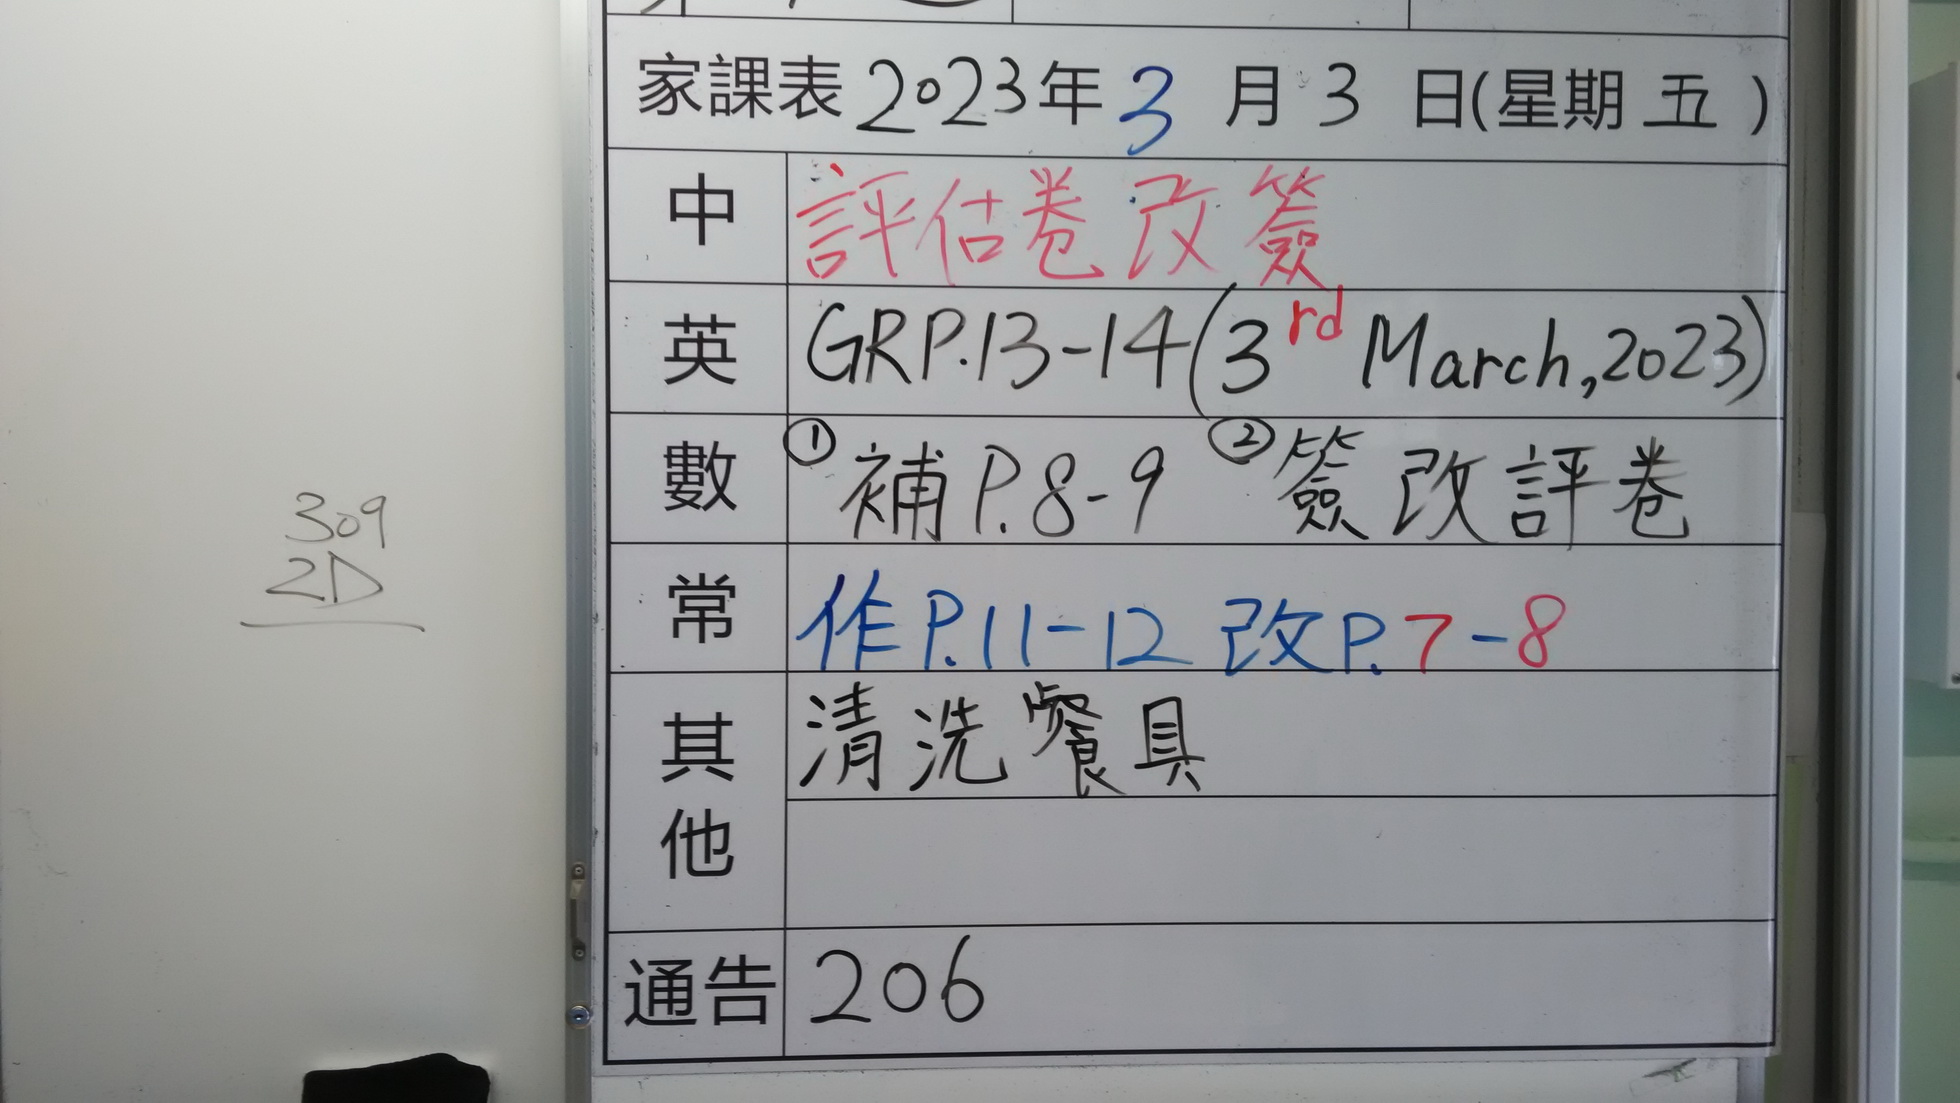 家課表 2023年 3 月 3 日(星期 五 )
中 評估卷改簽
英 GRP.13-14(3rd March,2023)
數 ①補P.8-9 ②簽改評卷
常 作P.11-12 改P.7-8
其他 清洗餐具
通告 206
309
2D